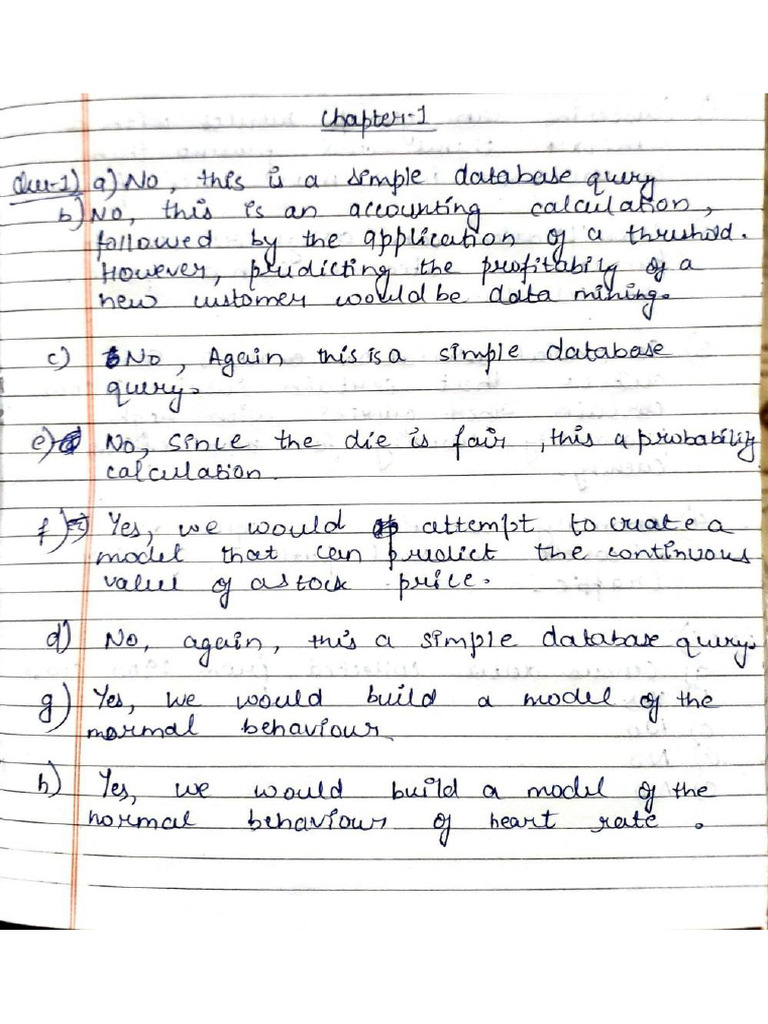 Chapter-1
Que-1) a) No, this is a simple database query
b) No, this is an accounting calculation,
followed by the application of a threshold.
However, predicting the profitabily of a
new customer would be data mining.
c) No, Again this is a simple database
query.
e) No, since the die is fair, this a probability
calculation.
f) Yes, we would attempt to create a
model that can predict the continuous
value of a stock price.
d) No, again, this a simple database query.
g) Yes, we would build a model of the
normal behaviour
h) Yes, we would build a model of the
normal behaviour of heart rate.